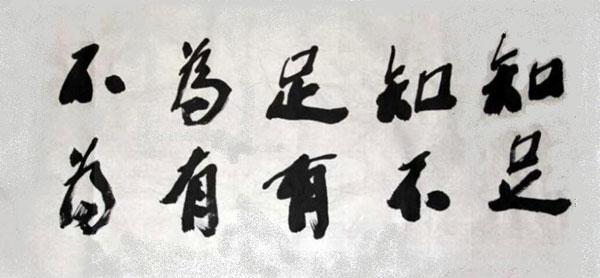 知足
知不
足有
為有
不為